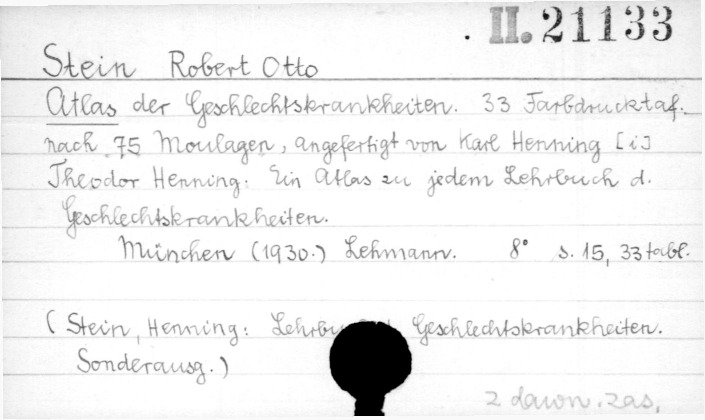 . II. 21133
Stein Robert Otto
Atlas der Geschlechtskrankheiten. 33 Farbdrucktaf.
nach 75 Moulagen, angefertigt von Karl Henning [i]
Theodor Henning. Ein Atlas zu jedem Lehrbuch d.
Geschlechtskrankheiten.
München (1930.) Lehmann. 8° s. 15, 33 tabl.
(Stein, Henning: Lehrbu Geschlechtskrankheiten.
Sonderausg.)
z dawn. zas.